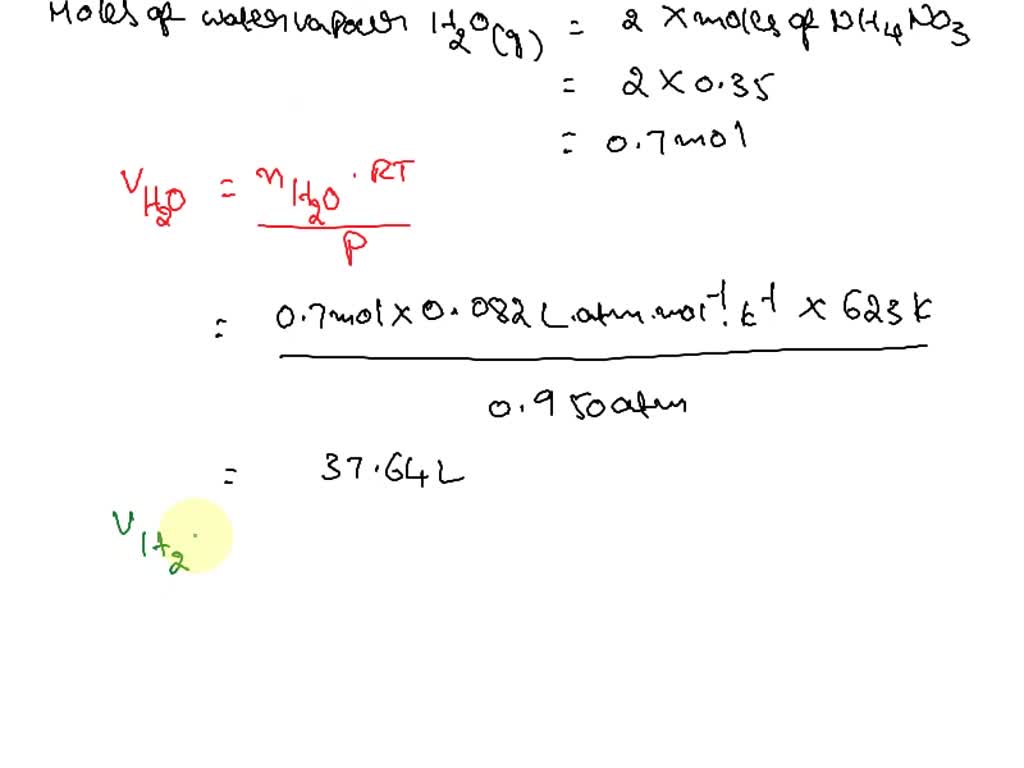 Moles of water vapour H₂O(g) = 2 X moles of NH₄NO₃
= 2 X 0.35
= 0.7 mol
V_H₂O = n_H₂O . RT / P
= 0.7 mol X 0.082 L.atm.mol⁻¹.k⁻¹ X 623 k / 0.950 atm
= 37.64 L
V_H₂